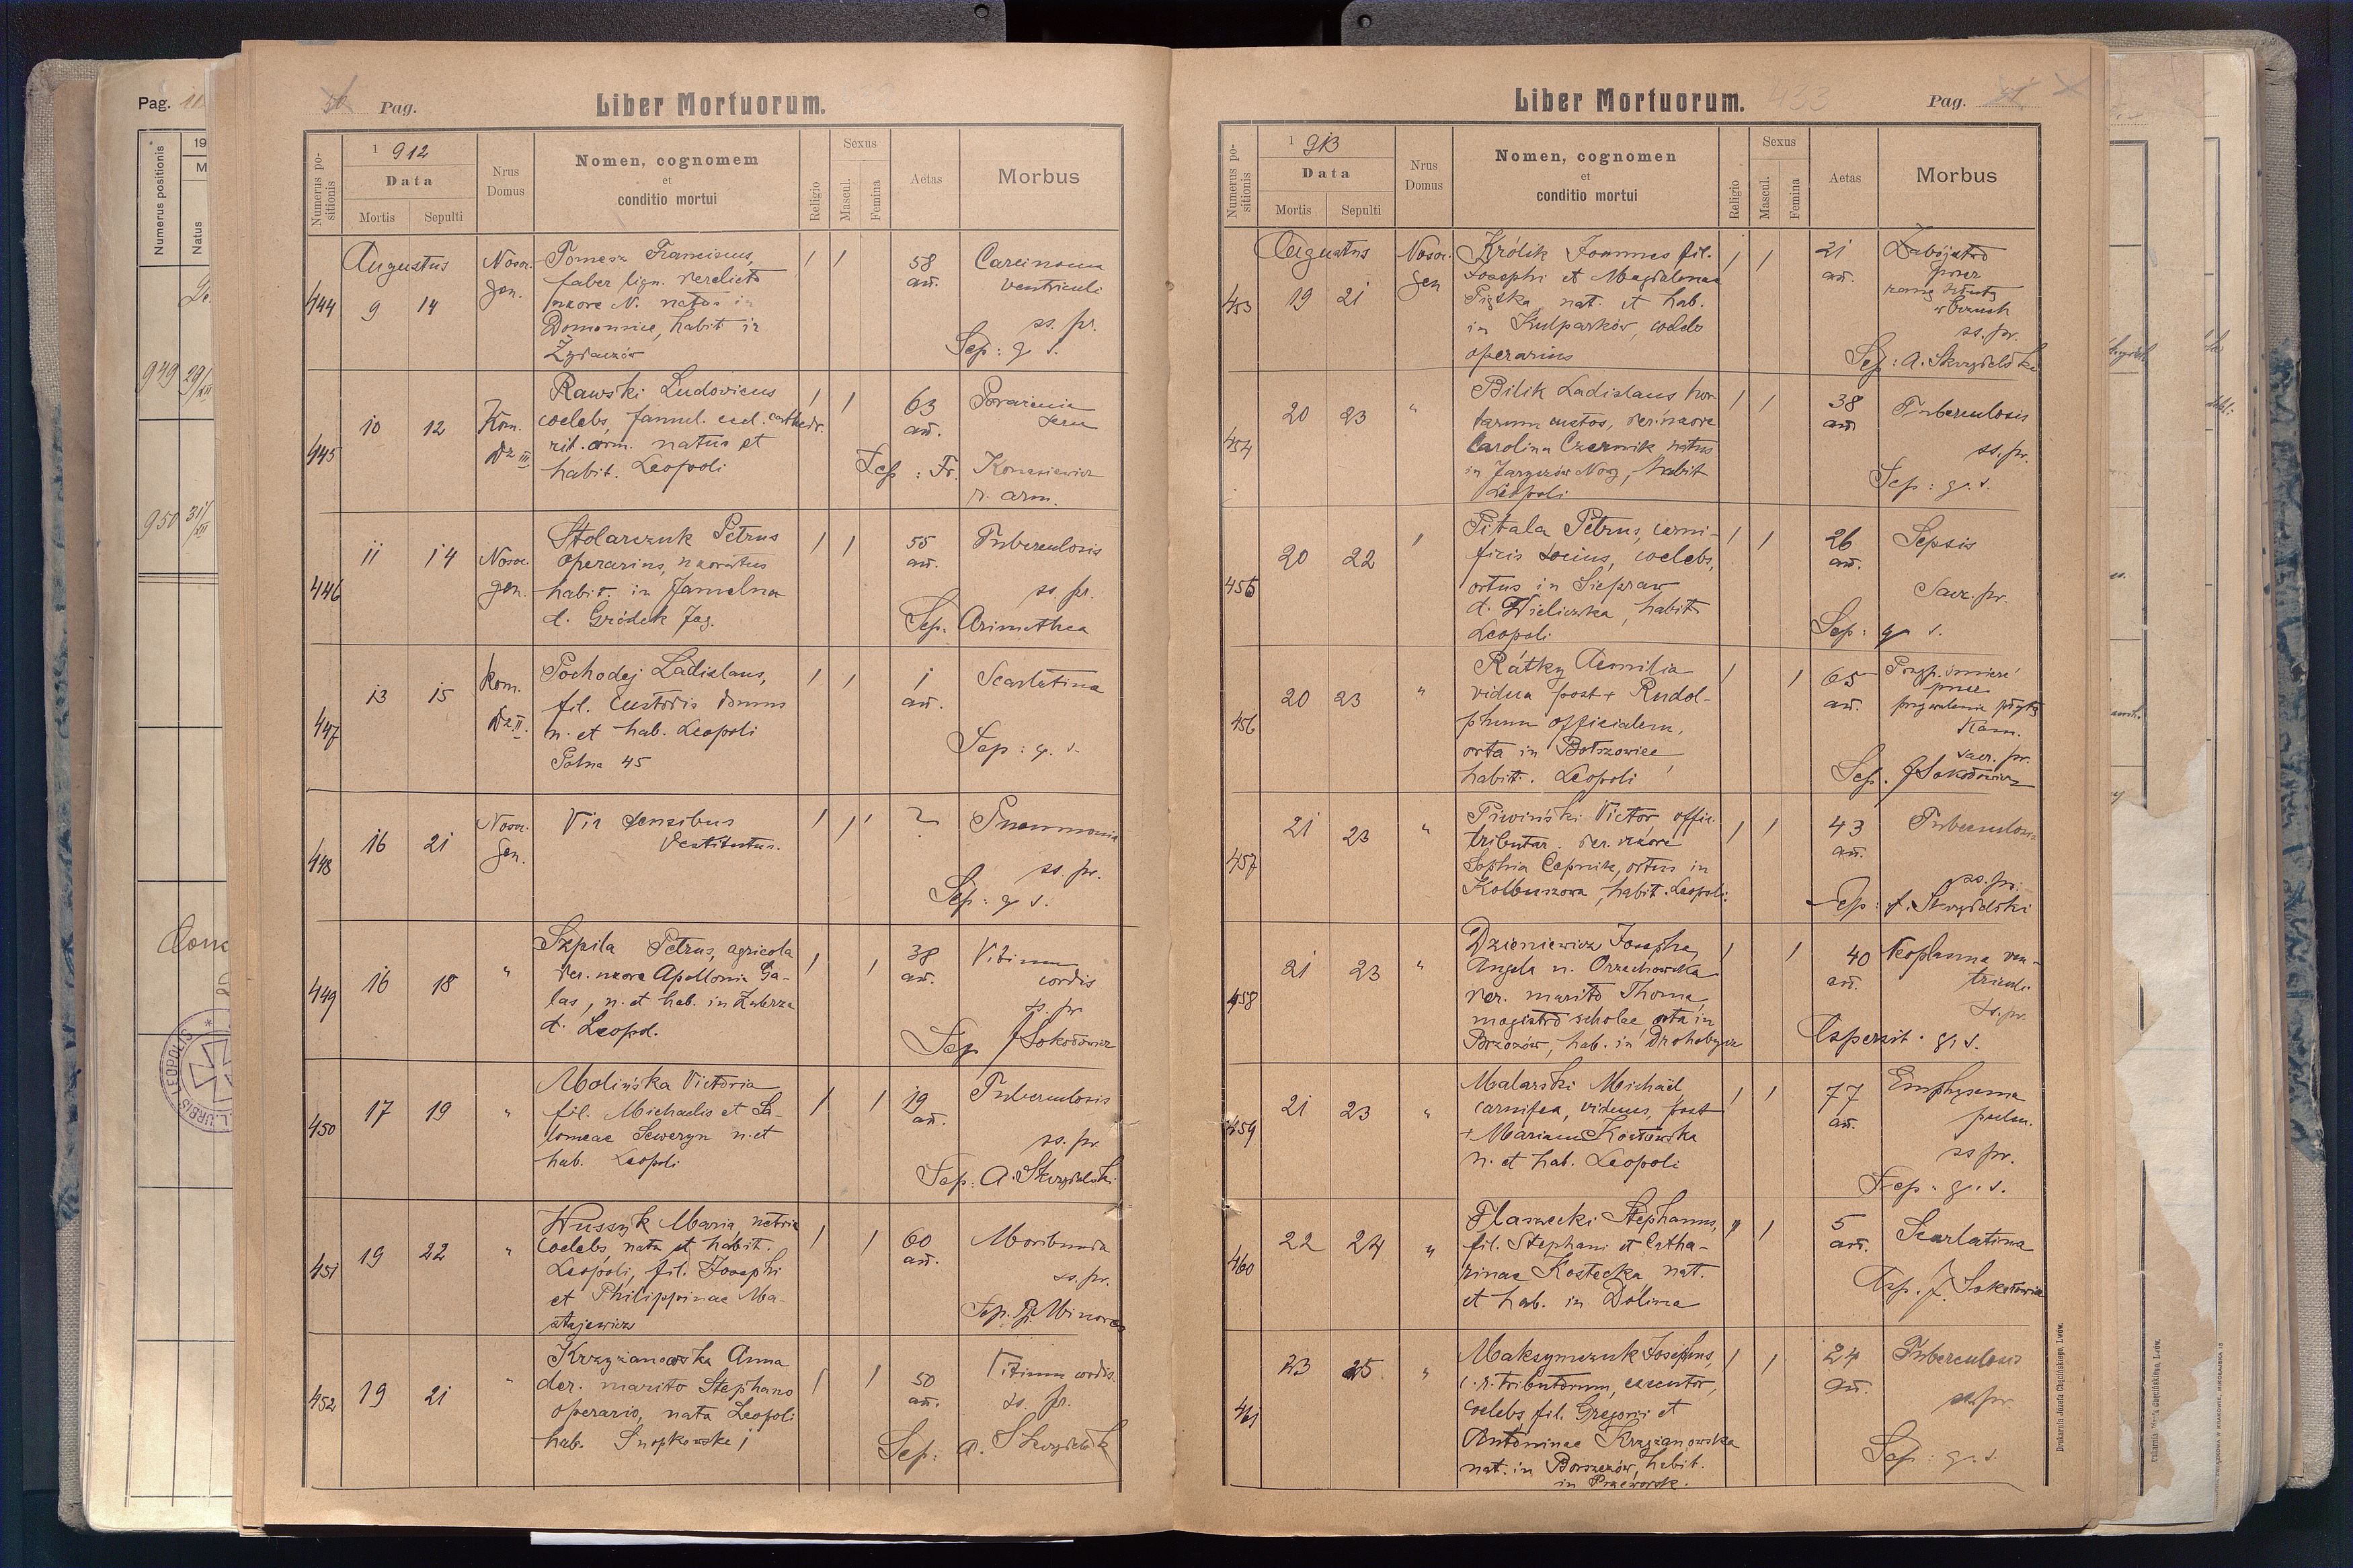 Pag.
Numerus positionis
19
Natus
949 29/XII
950 31/XII
LEOPOLIS
URBIS
Pag.
Liber Mortuorum.
Numerus positionis
1912
Data
Mortis
Sepulti
Nrus Domus
Nomen, cognomem
et
conditio mortui
Religio
Sexus
Mascul.
Femina
Aetas
Morbus
Augustus
444
9 14
Nosoc. gen.
Tomesz Franciscus,
faber lign. derelicto
uxore N. natus in
habit in
58 an.
Carcinoma
ventriculi
ss. pr.
Sep: q s.
445
10 12
Kom. Dz III
Rawski Ludovicus
coelebs, famul. eccl. cathedr.
rit. arm. natus et
habit. Leopoli
63 an.
Porażenie
Sep: Fr.
r. arm.
446
11 14
Nosoc. gen.
Stolarczuk Petrus
operarius, uxoratus
habit. in Jamelna
d. Gródek Jag.
55 an.
Tuberculosis
ss. pr.
Sep. Arimathea
447
13 15
Kom. Dz II.
Pochodej Ladislaus,
fil. custodis domus
n. et hab. Leopoli
Polna 45
1 an.
Scarlatina
Sep: q. s.
448
16 21
Nosoc. gen.
Vir sensibus
destitutus.
?
Pneumonia
ss. pr.
Sep: q s.
449
16 18
"
Szpila Petrus, agricola
der. uxore Apollonia Ga-
las, n. et hab. in Zubrza
d. Leopol.
38 an.
Vitium
cordis
ss. pr
Sep J Sokołowicz
450
17 19
"
Molińska Victoria
fil. Michaelis et Sa-
lomeae Seweryn n. et
hab. Leopoli
19 an.
Tuberculosis
ss. pr.
Sep: A. Skrzydelski
451
19 22
"
Hussyk Maria,
coelebs, nata et habit.
Leopoli, fil. Josephi
et Philippinae Ma-
60 an.
Moribunda
ss. pr.
Sep.
452
19 21
"
Krzyżanowska Anna
der. marito Stephano
operario, nata Leopoli
hab. Snopkowska 1
50 an.
Vitium cordis.
ss. pr.
Sep: A. Skrzydelski
Liber Mortuorum.
433
Pag.
Numerus positionis
1913
Data
Mortis
Sepulti
Nrus Domus
Nomen, cognomen
et
conditio mortui
Religio
Sexus
Mascul.
Femina
Aetas
Morbus
Augustus
453
19 21
Nosoc. gen
Królik Joannes fil.
Josephi et Magdalenae
Piątka, nat. et hab.
in Kulparków, coelebs
operarius
21 an.
Zabójstwo
przez
ranę kłutą
w brzuch
ss. pr.
Sep: A. Skrzydelski
454
20 23
"
Bilik Ladislaus hor-
tarum custos, der. uxore
Carolina Czernik natus
in habit
Leopoli
38 an
Tuberculosis
ss. pr.
Sep: q. s.
455
20 22
Pitala Petrus, carni-
ficis socius, coelebs,
ortus in Siepraw
d. Wieliczka, habit
Leopoli
26 an.
Sepsis
Sacr. pr.
Sep: q s.
456
20 23
"
Rátky Aemilia
vidua post + Rudol-
phum officialem,
orta in Bołszowice,
habit. Leopoli
65 an.
Przyp. śmierć
przez
przywalenie płytą
kam.
Sacr. pr.
Sep. J Sokołowicz
457
21 23
"
Piwiński Victor offic.
tributar. der. uxore
Sophia Cepnik, ortus in
Kolbuszowa, habit. Leopoli.
43 an.
Tuberculosis
ss. pr.
Sep: Skrzydelski
458
21 23
"
Dzieniewicz Josepha,
Angela n. Orzechowska
der. marito Thoma,
magistro scholae orta in
Brzozów, hab. in Drohobycz
40 an.
Neoplasma ven-
triculi
ss. pr.
Aspersit q. s.
459
21 23
"
Malarski Michael
carnifex, viduus, post
+ Mariam Kozłowska
n. et hab. Leopoli
77 an.
Emphysema
pulm.
ss pr.
Sep: q. s.
460
22 24
"
Flaszecki Stephanus,
fil. Stephani et Catha-
rinae Kostecka, nat.
et hab. in Dolina
5 an.
Scarlatina
Asp. J. Sokołowicz
461
23 25
"
Maksymczuk Josephus,
c. r. tributorum, executor,
coelebs, fil. Gregorii et
Antoninae Krzyżanowska
nat. in Borszczów, habit.
in Przeworsk.
24 an.
Tuberculosis
ss. pr
Sep: q. s.
Drukarnia Józefa Chęcińskiego, Lwów.